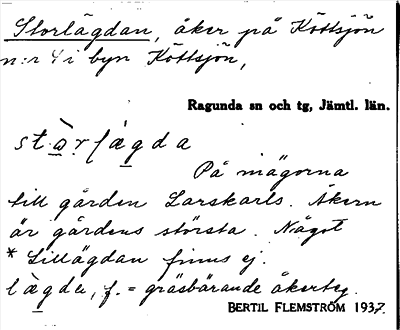 Storlägdan, åker på Köttsjön
n:r 4 i byn Köttsjön,
Ragunda sn och tg, Jämtl. län.
stò̱rlä̀gda
På mägorna
till gården Larskarls. Åkern
är gårdens största. Något
* Lillägdan finns ej.
lä̀gda, f. = gräsbärande åkerteg.
BERTIL FLEMSTRÖM 1937.